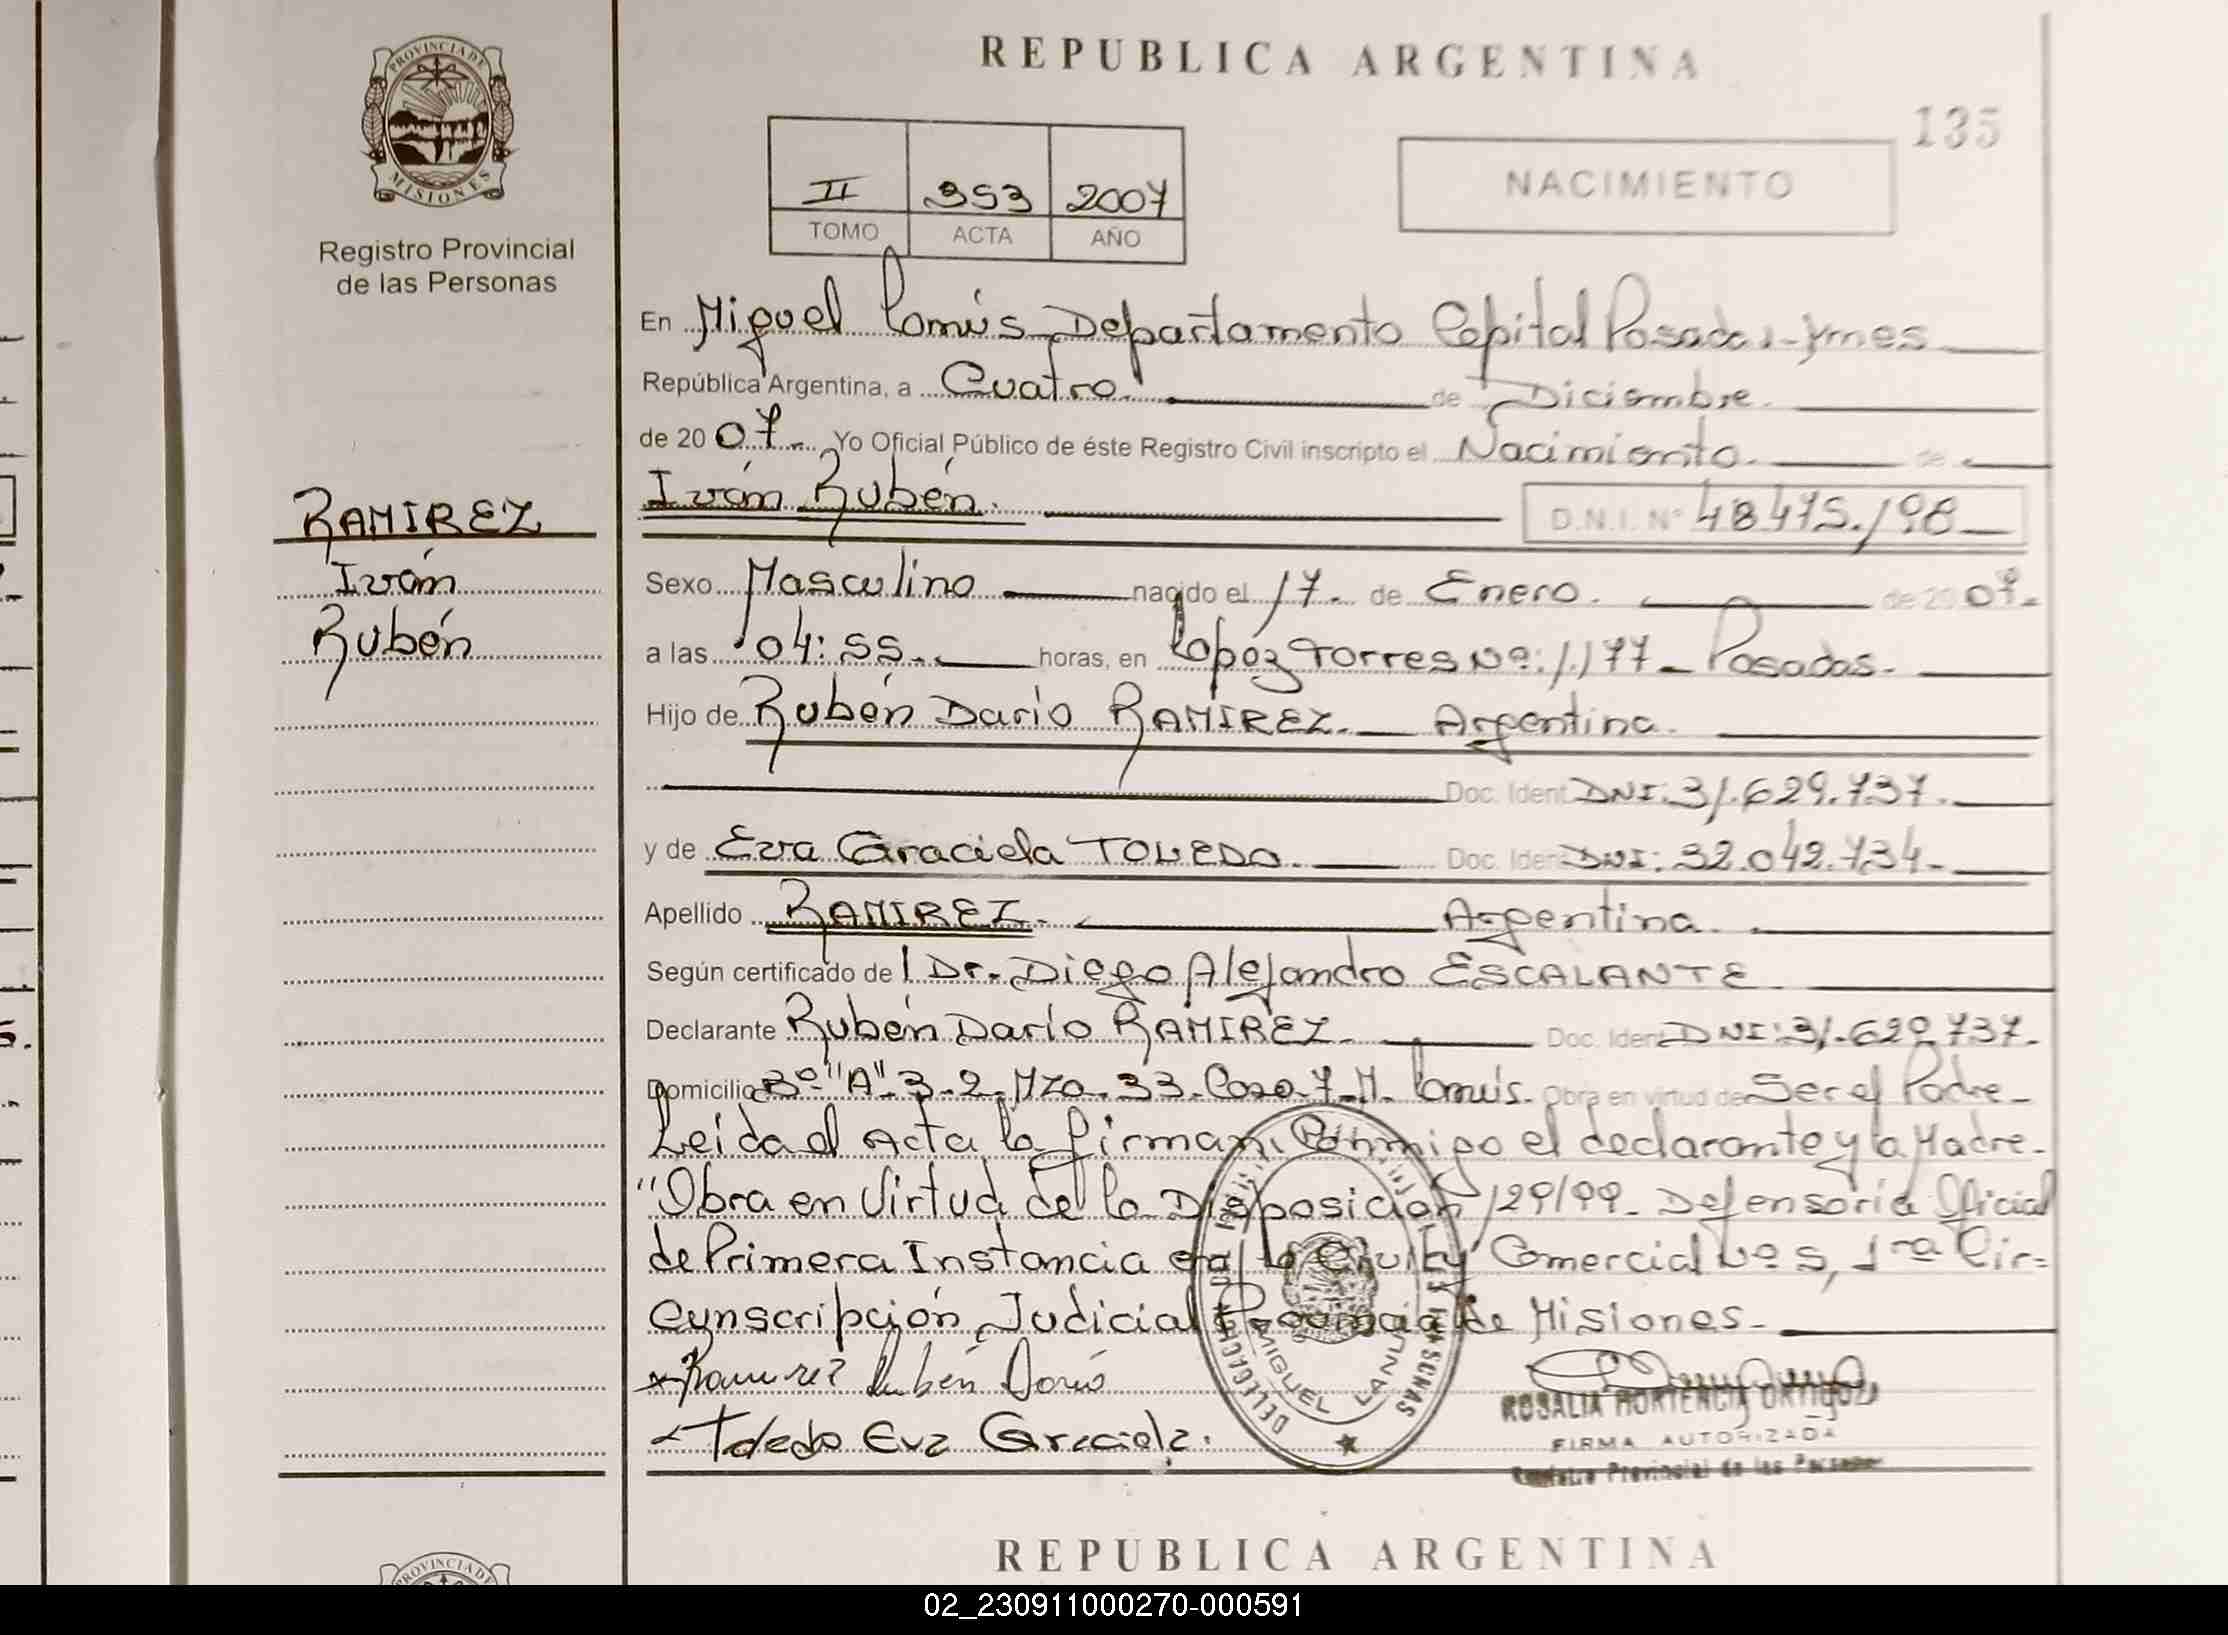 PROVINCIA DE
MISIONES
Registro Provincial
de las Personas
RAMIREZ
Iván
Rubén
REPUBLICA ARGENTINA
135
II 353 2007
TOMO ACTA AÑO
NACIMIENTO
En Miguel Lanús Departamento Capital Posadas
República Argentina, a Cuatro. de Diciembre.
de 20 07. Yo Oficial Público de éste Registro Civil inscripto el Nacimiento. de
Iván Rubén. D.N.I. N° 48475.198
Sexo Masculino nacido el 17. de Enero. de 20 07.
a las 04:55. horas, en López Torres Nº: 1.177 - Posadas.
Hijo de Rubén Darío RAMIREZ. Argentina.
Doc. Ident DNI: 31.629.737.
y de Eva Graciela TOLEDO. Doc. Iden DNI: 32.042.734-
Apellido RAMIREZ. Argentina.
Según certificado de l Dr. Diego Alejandro ESCALANTE
Declarante Rubén Darío RAMIREZ. Doc. Iden DNI: 31.629.737.
Domicilio Bº "A" 3-2. Mza. 33. Casa 7 M. Lanús. Obra en virtud de Ser el Padre-
Leída el Acta la firman Conmigo el declarante y la Madre.
"Obra en Virtud de la Disposición 129/99. Defensoría Oficial
de Primera Instancia en lo Civil y Comercial Nº 5, 1ra Cir=
cunscripción Judicial Provincia de Misiones-
Ramirez Rubén Darío
Toledo Eva Graciela.
DELEGACION MIGUEL LANUS
ROSALIA HORTENCIA ORTIGOZA
FIRMA AUTORIZADA
Registro Provincial de las Personas
REPUBLICA ARGENTINA
PROVINCIA DE
02_230911000270-000591